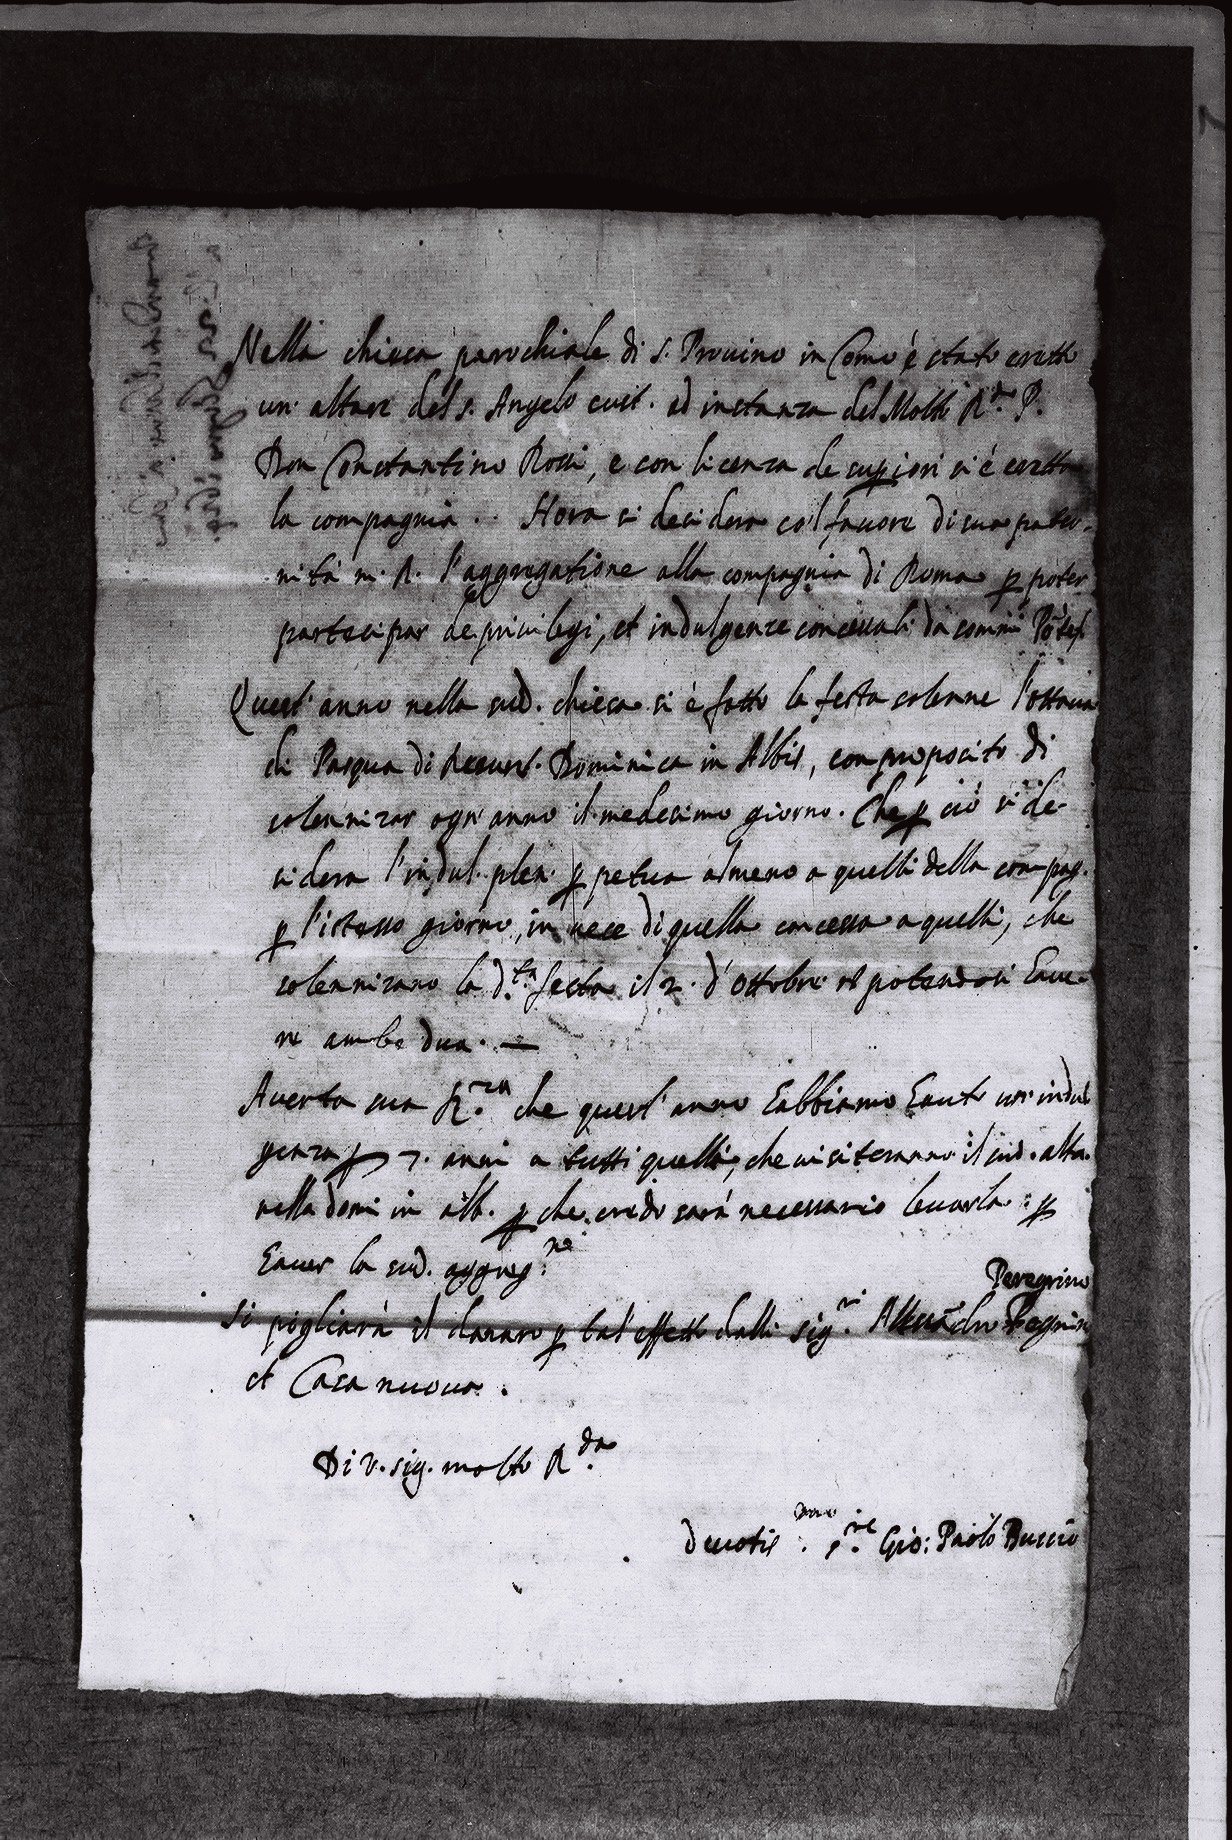 Nella chiesa parochiale di s. Prouino in Como è stato eretto
un' altare del s. Angelo cust. ad instanza del Molto R.do P.
Don Constantino Rossi, e con licenza de supiori si è eretta
la compagnia. Hora si desidera co'l fauore di sua pater-
nità m. R. l'aggregatione alla compagnia di Roma p poter
partecipar de priuilegi, et indulgenze concessali da sommi
Quest' anno nella sud. chiesa si è fatto la festa solenne l'ottaua
di Pasqua di Resurr. Dominica in Albis, con proposito di
solennizar ogn' anno il medesimo giorno. Che p ciò si de-
sidera l'indul. plen. p petua almeno a quelli della compag.
p l'istesso giorno, in uece di quella concessa a quelli, che
solennizano la d.ta festa il 2. d'ottobre potendosi haue-
re ambe dua. —
Auerta sua che quest' anno habbiamo hauto un' indul
genza p 7. anni a tutti quelli, che uisiteranno il sud. alta.
nella dom. in alb. p che credo sarà necessario leuarla p
hauer la sud. aggreg.ne
Peregrino
Si pigliarà il danaro p tal' effetto dalli sig.ri Alessādro
et Casanuoua.
Di V. sig. molto R.da
deuotis.mo s.re Gio: Paolo Buccio